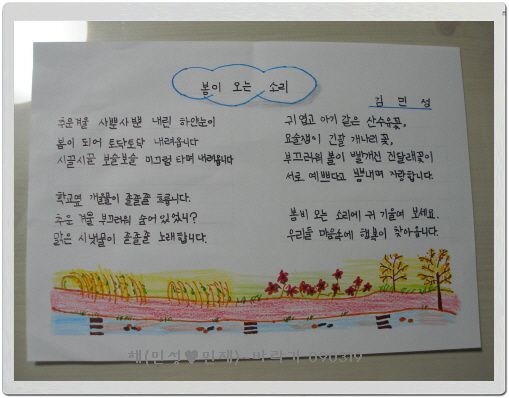 봄이 오는 소리
김민성
추운겨울 사뿐사뿐 내린 하얀눈이
봄이 되어 토닥토닥 내려옵니다
시끌시끌 보슬보슬 미끄럼 타며 내려옵니다
학교옆 개울물이 졸졸졸 흐릅니다.
추운 겨울 부끄러워 숨어 있었니?
맑은 시냇물이 졸졸졸 노래합니다.
귀엽고 아기 같은 산수유꽃,
요술쟁이 긴팔 개나리꽃,
부끄러워 볼이 빨개진 진달래꽃이
서로 예쁘다고 뽐내며 자랑합니다.
봄비 오는 소리에 귀 기울여 보세요.
우리들 마음속에 행복이 찾아옵니다.
해(민성♥민재)-바라기 090319